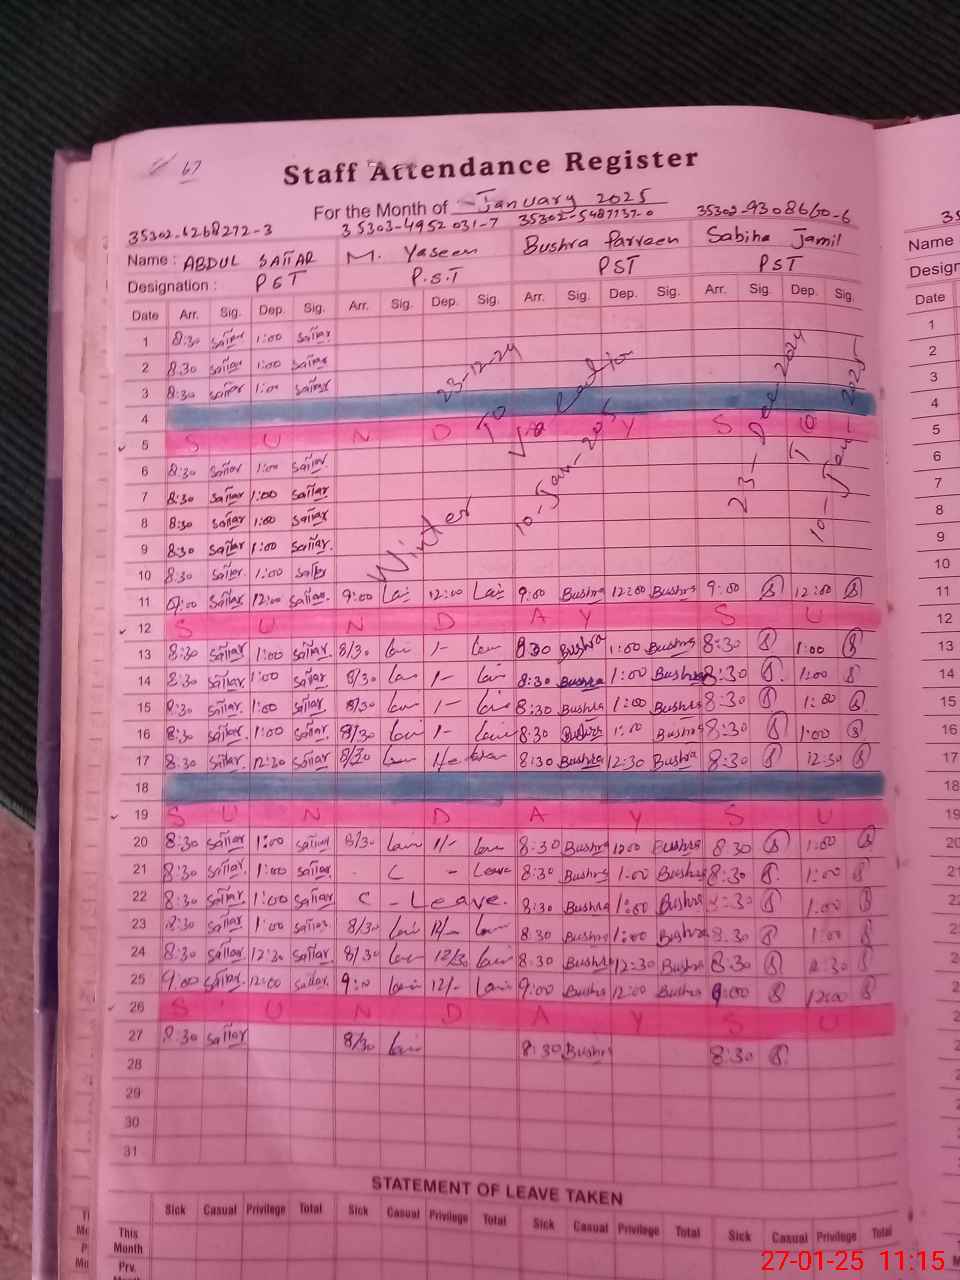 67
Staff Attendance Register
For the Month of January 2025
35302-6268272-3 35303-4952031-7 35302-5487137-0 35302-9308660-6
Name : ABDUL SATTAR M. Yaseen Bushra Parveen Sabiha Jamil
Designation : PST P.S.T PST PST
Date Arr. Sig. Dep. Sig. Arr. Sig. Dep. Sig. Arr. Sig. Dep. Sig. Arr. Sig. Dep. Sig.
1 8:30 Sattar 1:00 Sattar
2 8:30 Sattar 1:00 Sattar
3 8:30 Sattar 1:00 Sattar
4
5 S U N D A Y S U
6 8:30 Sattar 1:00 Sattar
7 8:30 Sattar 1:00 Sattar
8 8:30 Sattar 1:00 Sattar
9 8:30 Sattar 1:00 Sattar
10 8:30 Sattar 1:00 Sattar
Winter Vacation
23-12-24 To 10-Jan-2025
23-Dec-2024 To 10-Jan-2025
11 9:00 Sattar 12:00 Sattar 9:00 12:00 9:00 Bushra 12:00 Bushra 9:00 12:00
12 S U N D A Y S U
13 8:30 Sattar 1:00 Sattar 8/30 1- 8:30 Bushra 1:00 Bushra 8:30 1:00
14 8:30 Sattar 1:00 Sattar 8/30 1- 8:30 Bushra 1:00 Bushra 8:30 1:00
15 8:30 Sattar 1:00 Sattar 8/30 1- 8:30 Bushra 1:00 Bushra 8:30 1:00
16 8:30 Sattar 1:00 Sattar 8/30 1- 8:30 Bushra 1:00 Bushra 8:30 1:00
17 8:30 Sattar 12:30 Sattar 8/30 8:30 Bushra 12:30 Bushra 8:30 12:30
18
19 S U N D A Y S U
20 8:30 Sattar 1:00 Sattar 8/30 1/- 8:30 Bushra 1:00 Bushra 8:30 1:00
21 8:30 Sattar 1:00 Sattar C - Leave 8:30 Bushra 1:00 Bushra 8:30 1:00
22 8:30 Sattar 1:00 Sattar C - Leave. 8:30 Bushra 1:00 Bushra 8:30 1:00
23 8:30 Sattar 1:00 Sattar 8/30 8:30 Bushra 1:00 Bushra 8:30 1:00
24 8:30 Sattar 12:30 Sattar 8/30 12/30 8:30 Bushra 12:30 Bushra 8:30 12:30
25 9:00 Sattar 12:00 Sattar 9:00 12/- 9:00 Bushra 12:00 Bushra 9:00 12:00
26 S U N D A Y S U
27 8:30 Sattar 8/30 8:30 Bushra 8:30
28
29
30
31
STATEMENT OF LEAVE TAKEN
Sick Casual Privilege Total Sick Casual Privilege Total Sick Casual Privilege Total Sick Casual Privilege Total
This Month
Prv.
Name
Date
1
2
3
4
5
6
7
8
9
10
11
12
13
14
15
16
17
18
27-01-25 11:15